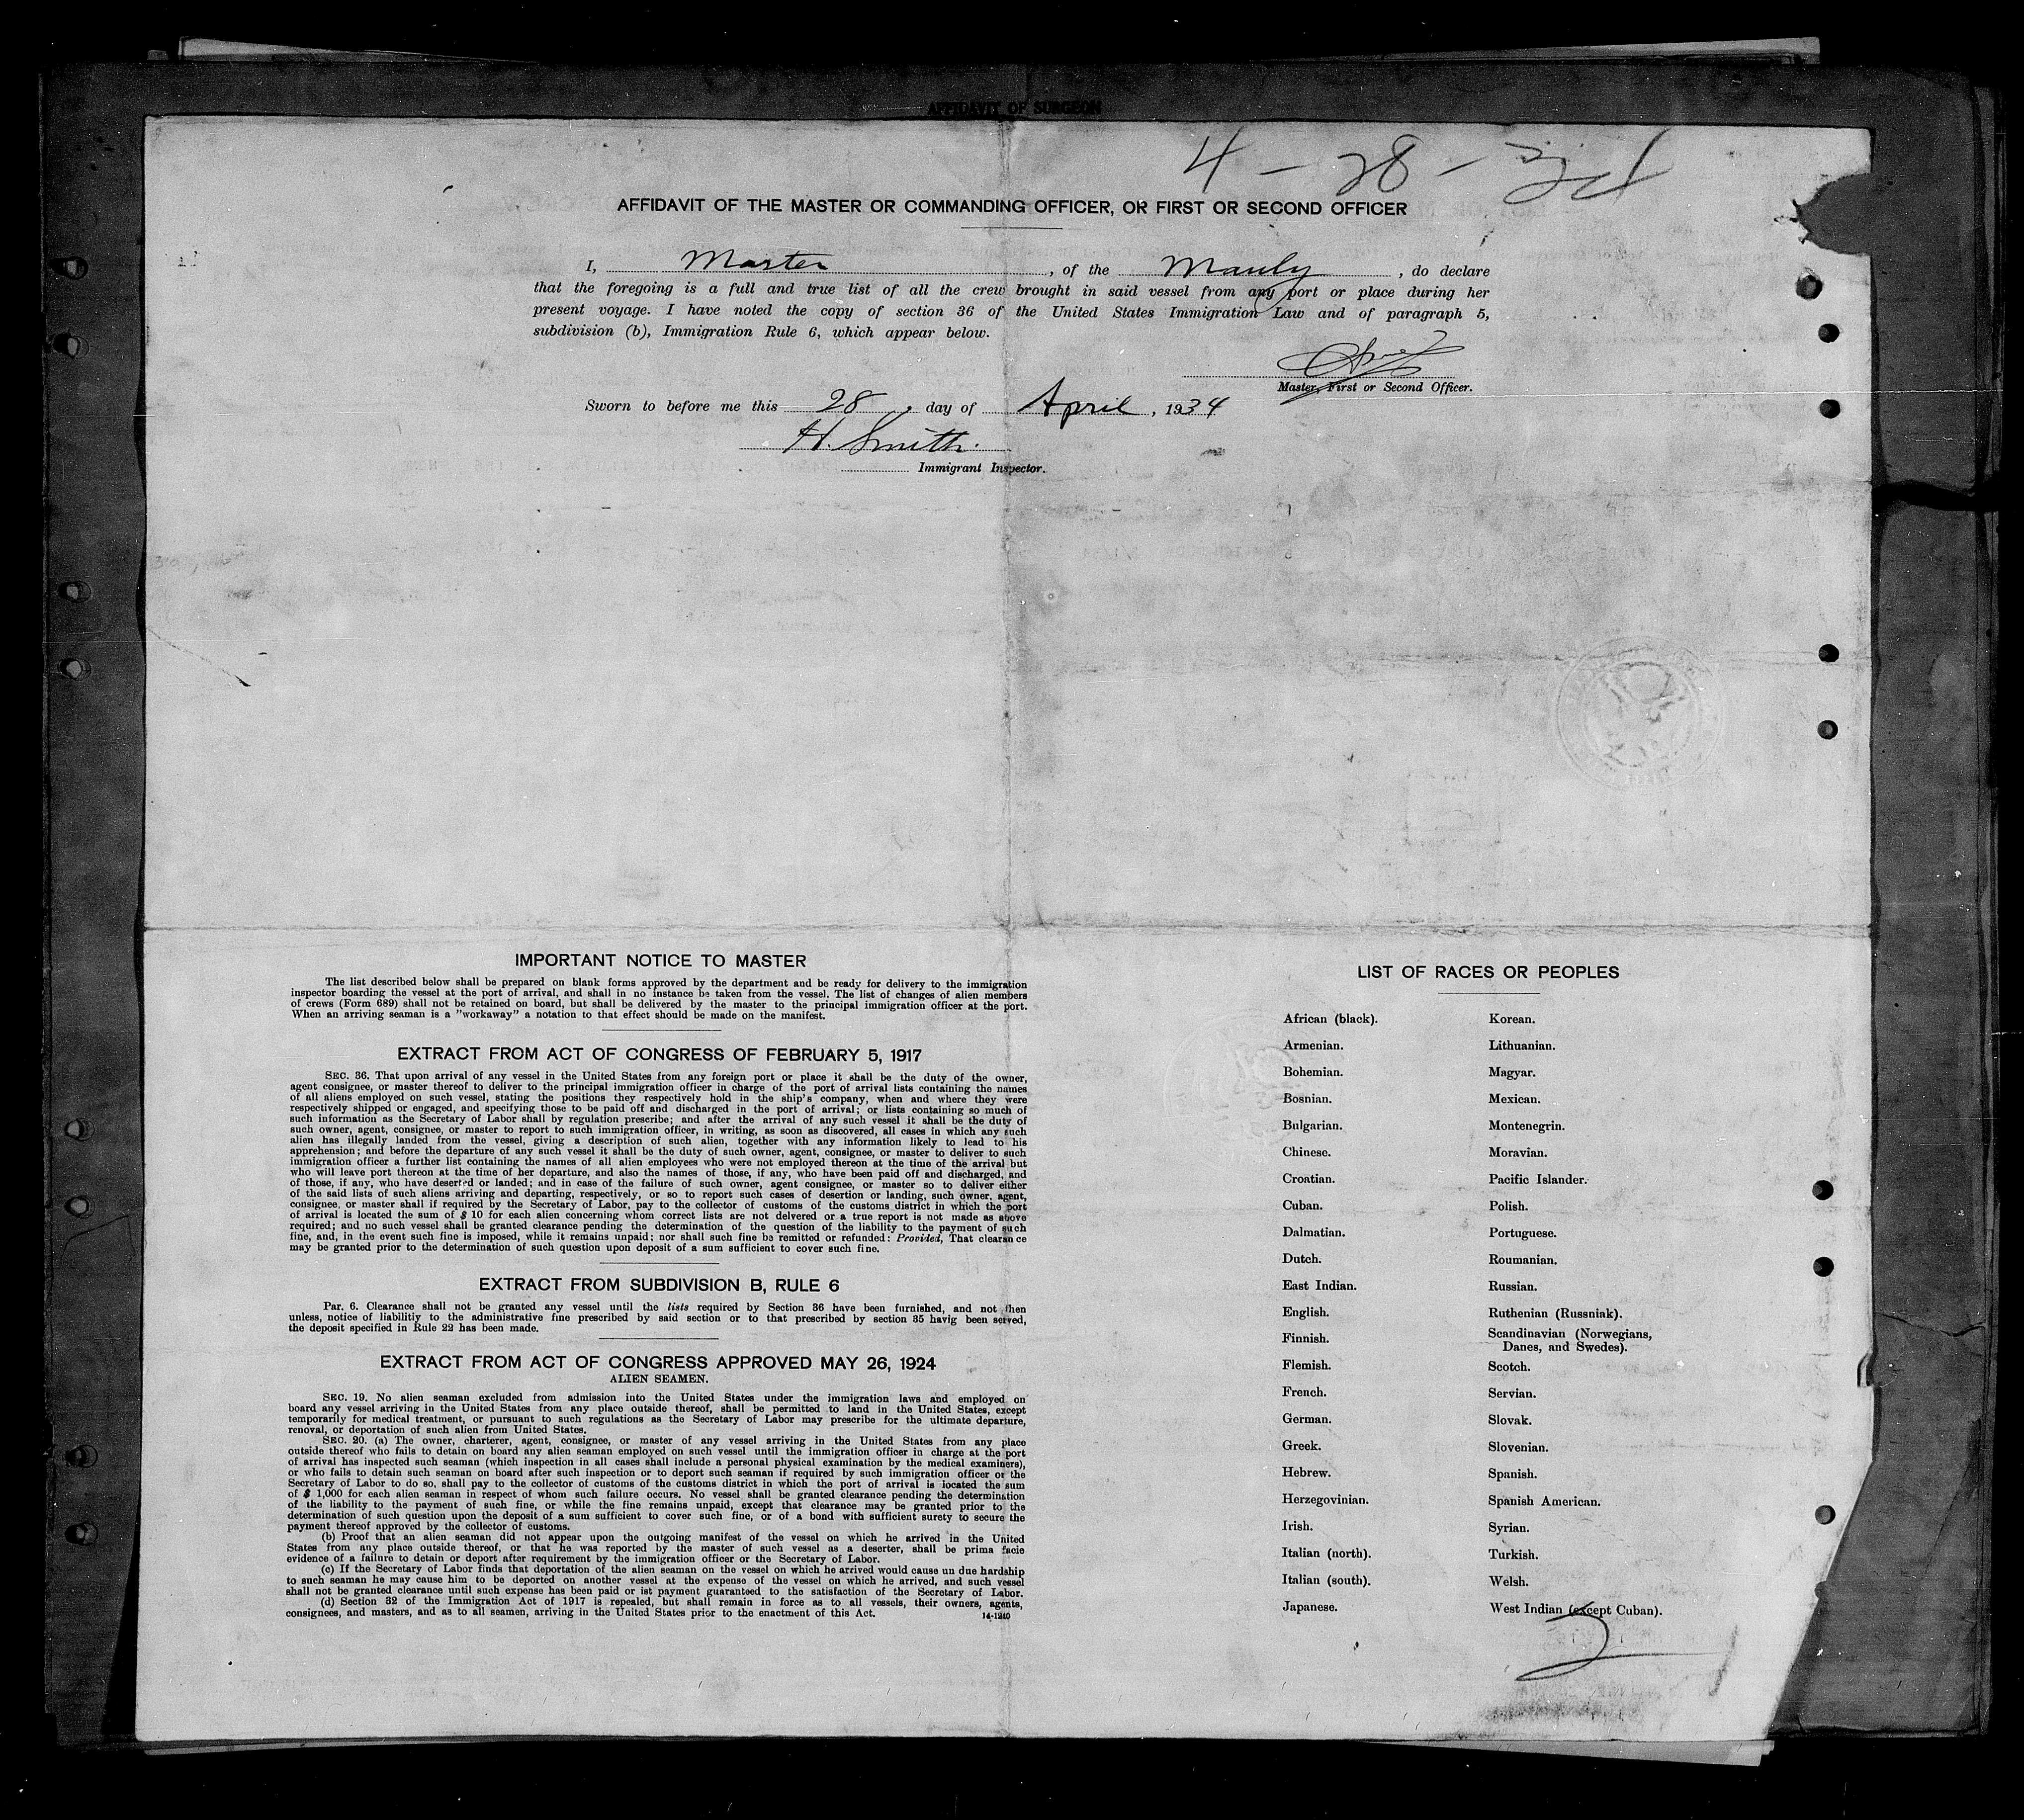 AFFIDAVIT OF SURGEON
4 - 28 - 34
AFFIDAVIT OF THE MASTER OR COMMANDING OFFICER, OR FIRST OR SECOND OFFICER
I, Master, of the Manly, do declare
that the foregoing is a full and true list of all the crew brought in said vessel from any port or place during her
present voyage. I have noted the copy of section 36 of the United States Immigration Law and of paragraph 5,
subdivision (b), Immigration Rule 6, which appear below.
Master, First or Second Officer.
Sworn to before me this 28, day of April, 1934
H. Smith.
Immigrant Inspector.
IMPORTANT NOTICE TO MASTER
The list described below shall be prepared on blank forms approved by the department and be ready for delivery to the immigration
inspector boarding the vessel at the port of arrival, and shall in no instance be taken from the vessel. The list of changes of alien members
of crews (Form 689) shall not be retained on board, but shall be delivered by the master to the principal immigration officer at the port.
When an arriving seaman is a "workaway" a notation to that effect should be made on the manifest.
EXTRACT FROM ACT OF CONGRESS OF FEBRUARY 5, 1917
SEC. 36. That upon arrival of any vessel in the United States from any foreign port or place it shall be the duty of the owner,
agent consignee, or master thereof to deliver to the principal immigration officer in charge of the port of arrival lists containing the names
of all aliens employed on such vessel, stating the positions they respectively hold in the ship's company, when and where they were
respectively shipped or engaged, and specifying those to be paid off and discharged in the port of arrival; or lists containing so much of
such information as the Secretary of Labor shall by regulation prescribe; and after the arrival of any such vessel it shall be the duty of
such owner, agent, consignee, or master to report to such immigration officer, in writing, as soon as discovered, all cases in which any such
alien has illegally landed from the vessel, giving a description of such alien, together with any information likely to lead to his
apprehension; and before the departure of any such vessel it shall be the duty of such owner, agent, consignee, or master to deliver to such
immigration officer a further list containing the names of all alien employees who were not employed thereon at the time of the arrival but
who will leave port thereon at the time of her departure, and also the names of those, if any, who have been paid off and discharged, and
of those, if any, who have deserted or landed; and in case of the failure of such owner, agent consignee, or master so to deliver either
of the said lists of such aliens arriving and departing, respectively, or so to report such cases of desertion or landing, such owner, agent,
consignee, or master shall if required by the Secretary of Labor, pay to the collector of customs of the customs district in which the port
of arrival is located the sum of $ 10 for each alien concerning whom correct lists are not delvered or a true report is not made as above
required; and no such vessel shall be granted clearance pending the determination of the question of the liability to the payment of such
fine, and, in the event such fine is imposed, while it remains unpaid; nor shall such fine be remitted or refunded: Provided, That clearance
may be granted prior to the determination of such question upon deposit of a sum sufficient to cover such fine.
EXTRACT FROM SUBDIVISION B, RULE 6
Par. 6. Clearance shall not be granted any vessel until the lists required by Section 36 have been furnished, and not then
unless, notice of liabilitiy to the administrative fine prescribed by said section or to that prescribed by section 35 havig been served,
the deposit specified in Rule 22 has been made.
EXTRACT FROM ACT OF CONGRESS APPROVED MAY 26, 1924
ALIEN SEAMEN.
SEC. 19. No alien seaman excluded from admission into the United States under the immigration laws and employed on
board any vessel arriving in the United States from any place outside thereof, shall be permitted to land in the United States, except
temporarily for medical treatment, or pursuant to such regulations as the Secretary of Labor may prescribe for the ultimate departure,
renoval, or deportation of such alien from United States.
SEC. 20. (a) The owner, charterer, agent, consignee, or master of any vessel arriving in the United States from any place
outside thereof who fails to detain on board any alien seaman employed on such vessel until the immigration officer in charge at the port
of arrival has inspected such seaman (which inspection in all cases shall include a personal physical examination by the medical examiners),
or who fails to detain such seaman on board after such inspection or to deport such seaman if required by such immigration officer or the
Secretary of Labor to do so, shall pay to the collector of customs of the customs district in which the port of arrival is located the sum
of $ 1,000 for each alien seaman in respect of whom such failure occurs. No vessel shall be granted clearance pending the determination
of the liability to the payment of such fine, or while the fine remains unpaid, except that clearance may be granted prior to the
determination of such question upon the deposit of a sum sufficient to cover such fine, or of a bond with sufficient surety to secure the
payment thereof approved by the collector of customs.
(b) Proof that an alien seaman did not appear upon the outgoing manifest of the vessel on which he arrived in the United
States from any place outside thereof, or that he was reported by the master of such vessel as a deserter, shall be prima facie
evidence of a failure to detain or deport after requirement by the immigration officer or the Secretary of Labor.
(c) If the Secretary of Labor finds that deportation of the alien seaman on the vessel on which he arrived would cause un due hardship
to such seaman he may cause him to be deported on another vessel at the expense of the vessel on which he arrived, and such vessel
shall not be granted clearance until such expense has been paid or ist payment guaranteed to the satisfaction of the Secretary of Labor.
(d) Section 32 of the Immigration Act of 1917 is repealed, but shall remain in force as to all vessels, their owners, agents,
consignees, and masters, and as to all seamen, arriving in the United States prior to the enactment of this Act.
14-1240
LIST OF RACES OR PEOPLES
African (black).
Armenian.
Bohemian.
Bosnian.
Bulgarian.
Chinese.
Croatian.
Cuban.
Dalmatian.
Dutch.
East Indian.
English.
Finnish.
Flemish.
French.
German.
Greek.
Hebrew.
Herzegovinian.
Irish.
Italian (north).
Italian (south).
Japanese.
Korean.
Lithuanian.
Magyar.
Mexican.
Montenegrin.
Moravian.
Pacific Islander.
Polish.
Portuguese.
Roumanian.
Russian.
Ruthenian (Russniak).
Scandinavian (Norwegians,
Danes, and Swedes).
Scotch.
Servian.
Slovak.
Slovenian.
Spanish.
Spanish American.
Syrian.
Turkish.
Welsh.
West Indian (except Cuban).
2